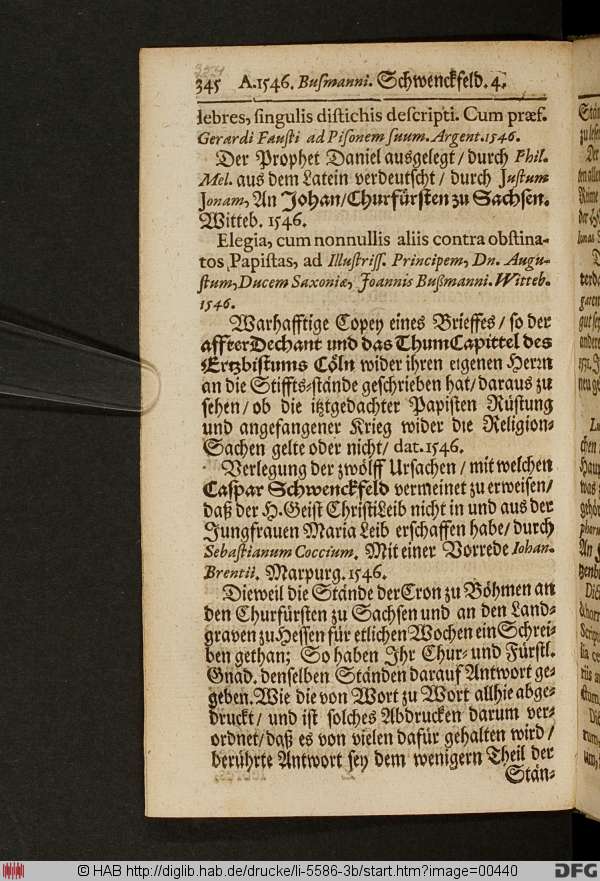 345 A.1546. Bußmanni. Schwenckfeld. 4.
lebres, singulis distichis descripti. Cum præf.
Gerardi Fausti ad Pisonem suum. Argent. 1546.
Der Prophet Daniel ausgelegt / durch Phil.
Mel. aus dem Latein verdeutscht / durch Justum
Jonam, An Johan/Churfürsten zu Sachsen.
Witteb. 1546.
Elegia, cum nonnullis aliis contra obstina-
tos Papistas, ad Illustriss. Principem, Dn. Augu-
stum, Ducem Saxoniæ, Joannis Bußmanni. Witteb.
1546.
Warhafftige Copey eines Brieffes / so der
affterDechant und das ThumCapittel des
Ertzbistums Cöln wider ihren eigenen Herrn
an die Stiffts-stände geschrieben hat/ daraus zu
sehen / ob die itztgedachter Papisten Rüstung
und angefangener Krieg wider die Religion-
Sachen gelte oder nicht / dat. 1546.
Verlegung der zwölff Ursachen / mit welchen
Caspar Schwenckfeld vermeinet zu erweisen/
daß der H. Geist ChristiLeib nicht in und aus der
Jungfrauen Maria Leib erschaffen habe / durch
Sebastianum Coccium. Mit einer Vorrede Iohan.
Brentii. Marpurg. 1546.
Dieweil die Stände der Cron zu Böhmen an
den Churfürsten zu Sachsen und an den Land-
graven zu Hessen für etlichen Wochen ein Schrei-
ben gethan; So haben Ihr Chur- und Fürstl.
Gnad. denselben Ständen darauf Antwort ge-
geben. Wie die von Wort zu Wort allhie abge-
druckt / und ist solches Abdrucken darum ver-
ordnet/daß es von vielen dafür gehalten wird /
berührte Antwort sey dem wenigern Theil der
Stän-
© HAB http://diglib.hab.de/drucke/li-5586-3b/start.htm?image=00440
DFG